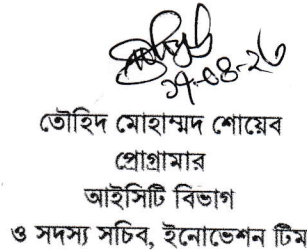 ২৭-০৪-২৬
তৌহিদ মোহাম্মদ শোয়েব
প্রোগ্রামার
আইসিটি বিভাগ
ও সদস্য সচিব, ইনোভেশন টিম